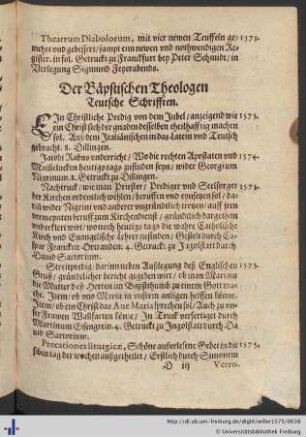 Theatrum Diabolorum, mit vier newen Teuffeln ge- 1575.
mehret vnd gebessert/ sampt eim newen vnd nothwendigen Re-
gister. in fol. Getruckt zu Franckfurt bey Peter Schmidt/ in
Verlegung Sigmund Feyerabends.
Der Bäpstischen Theologen
Teutsche Schrifften.
EJn Christliche Predig von dem Jubel/ anzeigend wie 1575.
ein Christ sich der gnaden desselben theilhafftig machen
sol. Auß dem Italiänischen in das Latein vnd Teutsch
gebracht. 8. Dillingen.
Jacobi Rabus vnderricht/ Wo die rechten Apostaten vnd 1574.
Maulchristen heutigs tags zufinden seyn/ wider Georgium
Nigrinum 8. Getruckt zu Dillingen.
Nachtruck/ wie man Priester/ Prediger vnd Seelsorger 1575.
der Kirchen ordentlich wöhlen/ beruffen vnd
wider Nigrini vnd anderer
vermeynten beruff zum Kirchendienst/ gründtlich dargethon
vnd erklert wirt/ wonoch heutigs tags die wahre Catholische
Kirch vnd Euangelische Lehrer zufinden/ Gestelt durch Ca-
spar Francken Ortranden. 4. Getruckt zu Ingolstatt durch
Dauid Sartorium.
Streitpredig/ darinn neben Außlegung deß Englischen 1575.
Gruß/ gründtlicher bericht gegeben wirt/ ob man Mariam
die Mutter deß Herren im Bapsthumb zu einem Gott ma-
che. Item/ ob vns Maria in vnsern anligen helffen könne.
Item/ ob ein Christ das Aue Maria sprechen sol. Auch zu vn-
ser Frawen Wallfarten köne/ In Truck verfertiget durch
Martinum Eisengrein 4. Getruckt zu Ingolstatt durch Da-
uid Sartorium.
Precationes liturgicæ, Schöne außerlesene Gebet in die 1575.
siben tag der wochen außgetheilet/ Erstlich durch Simonem
D iij
Verro-
http://dl.ub.uni-freiburg.de/diglit/willer1575/0038
© Universitätsbibliothek Freiburg